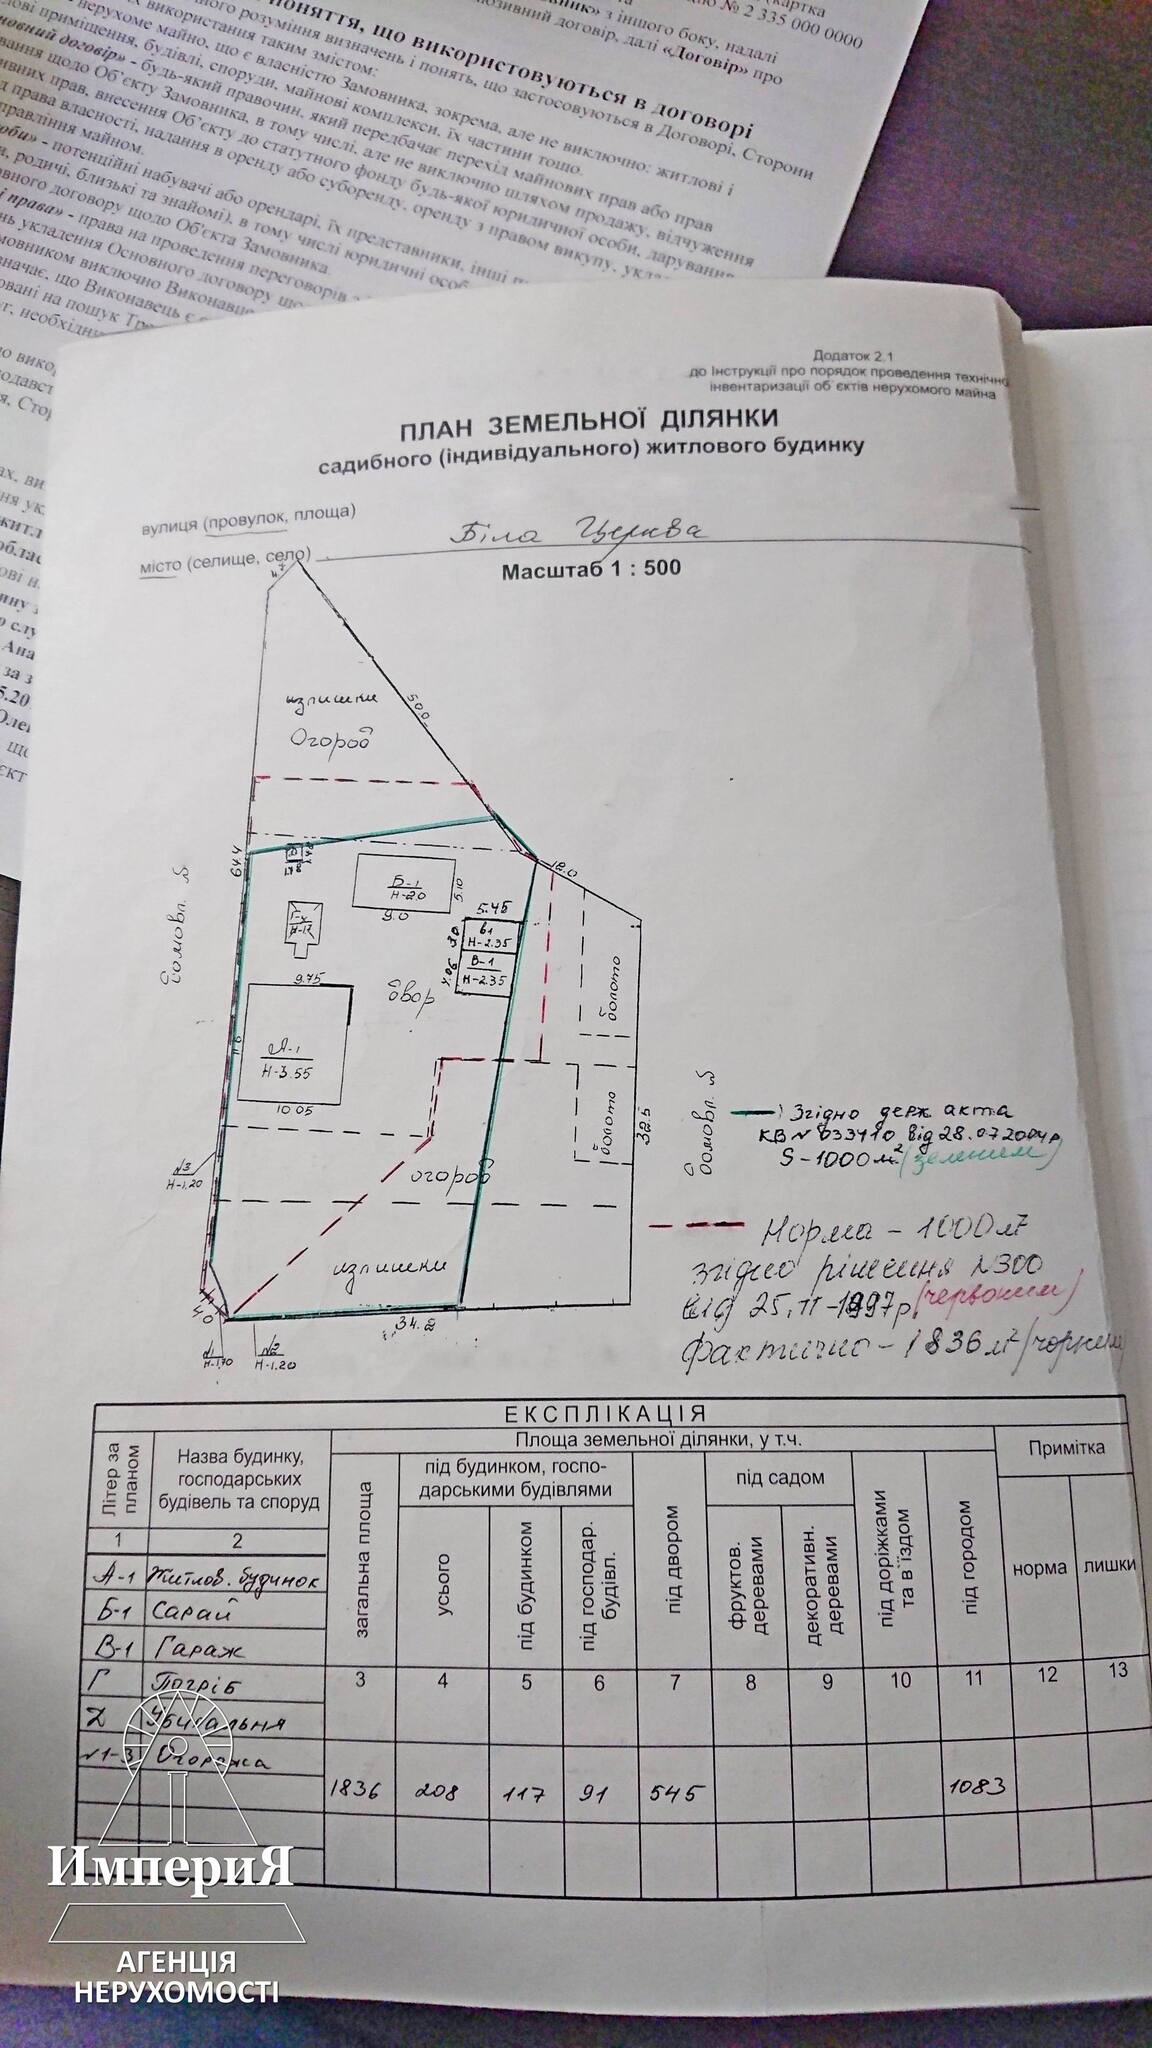 (картка
№ 2 335 000 0000
з іншого боку, надалі
договір, далі «Договір» про
поняття, що використовуються в договорі
розуміння визначень і понять, що застосовуються в Договорі, Сторони
використання таким змістом:
нерухоме майно, що є власністю Замовника, зокрема, але не виключно: житлові і
приміщення, будівлі, споруди, майнові комплекси, їх частини тощо.
договір» - будь-який правочин, який передбачає перехід майнових прав або прав
щодо Об'єкту Замовника, в тому числі, але не виключно шляхом продажу, відчуження
прав, внесення Об'єкту до статутного фонду будь-якої юридичної особи, дарування
права власності, надання в оренду або суборенду, оренду з правом викупу,
майном.
- потенційні набувачі або орендарі, їх представники, інші
родичі, близькі та знайомі), в тому числі юридичні
договору щодо Об'єкта Замовника.
права» - права на проведення переговорів з
укладення Основного договору
виключно
що Виконавець є
на пошук
Додаток 2.1
до Інструкції про порядок проведення технічно
інвентаризації об єктів нерухомого майна
ПЛАН ЗЕМЕЛЬНОЇ ДІЛЯНКИ
садибного (індивідуального) житлового будинку
вулиця (провулок, площа)
місто (селище, село) Біла Церква
Масштаб 1 : 500
излишки
Огород
500
644
12.0
Б-1
Н-2.0
5.10
9.0
5.45
в1
Н-2.35
3.0
В-1
Н-2.35
4.05
двор
болото
9.75
А-1
Н-3.55
11.6
10.05
болото
32.5
домовл. 5
домовл. 5
огород
излишки
№3
Н-1.20
4.0
34.2
№1
Н-1.70
№2
Н-1.20
Згідно держ акта
КВ № 033410 від 28.07.2004р
S-1000м² (зеленим)
Норма - 1000м²
згідно рішення №300
від 25.11-1997р (червоним)
фактично - 1836м² (чорним)
ЕКСПЛІКАЦІЯ
Літер за планом
Назва будинку, господарських будівель та споруд
Площа земельної ділянки, у т.ч.
Примітка
загальна площа
під будинком, госпо-
дарськими будівлями
усього
під будинком
під господар. будівл.
під двором
під садом
фруктов. деревами
декоративн. деревами
під доріжками та в'їздом
під городом
норма
лишки
1 2 3 4 5 6 7 8 9 10 11 12 13
А-1 Житлов. будинок
Б-1 Сарай
В-1 Гараж
Г Погріб
Д Убиральня
№1-3 Огорожа
1836 208 117 91 545 1083
ИмпериЯ
АГЕНЦІЯ
НЕРУХОМОСТІ